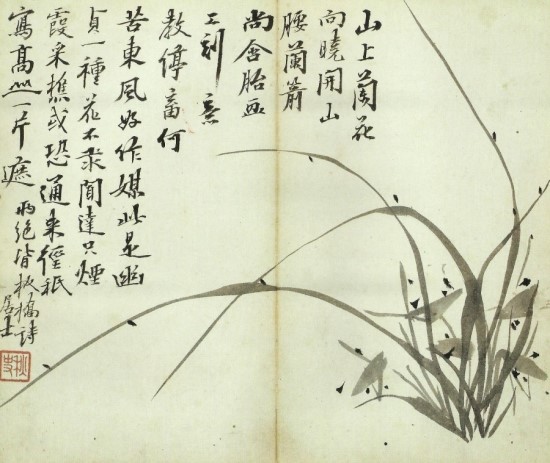 山上蘭花
向曉開山
腰蘭箭
尚含胎画
工刻意
教停畜何
苦東風好作媒此是幽
貞一種花不求聞達只煙
霞采樵或恐通來徑秖
寫高山一片遮兩絕皆板橋詩
居士